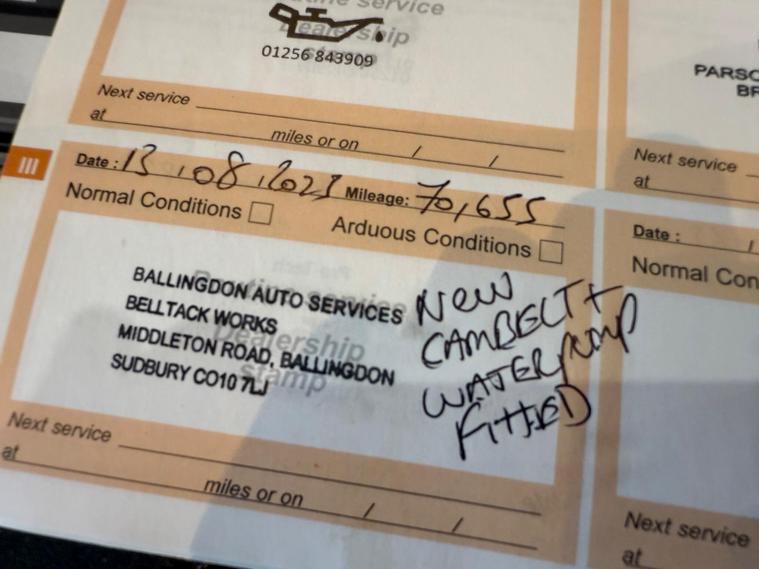 service
Dealership
stamp
01256 843909
Next service
at
miles or on / /
PARSO
BR
Next service
at
III
Date : 13.08.2021 Mileage: 70,655
Normal Conditions
Arduous Conditions
Date : /
Normal Con
BALLINGDON AUTO SERVICES
BELLTACK WORKS
MIDDLETON ROAD, BALLINGDON
SUDBURY CO10 7LJ
Routine service
Dealership
stamp
NEW
CAMBELT +
WATERPUMP
FITTED
Next service
at
miles or on / /
Next service
at